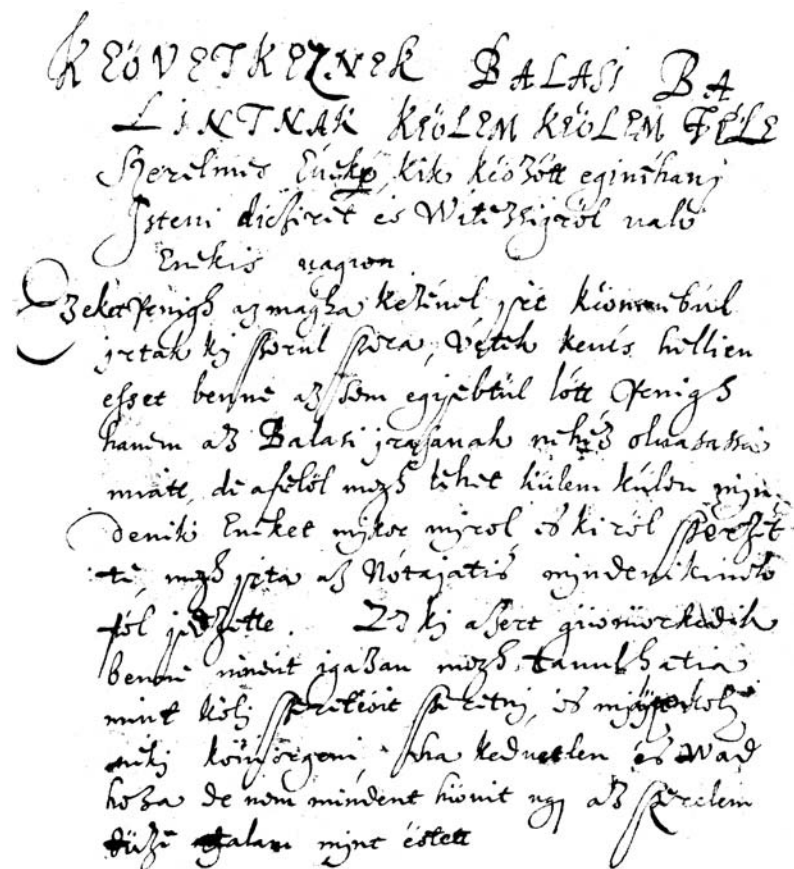 KEÖVETKEZNEK BALASI BA
LINTNAK KEÖLEM KEÖLEM FÉLE
Szerelmes Éneki, kik keözött eginéhanj
Isteni dicsiret és Witezsigröl ualo
Enekis uagion
Ezeket penigh az magha kezéuel irt kionuebúl
irtak ki szorúl szora, Vétek keués hellien
esset benne az sem egijebtúl lött penigh
hanem az Balasi irasanak nehéz oluasassa
miatt, de afelöl megh tehet külem külön min-
denik Eneket mikor miröl és kiröl szerzét
te, megh irta az Notajatis mindeniknek
föl jedzette. Ez ki azért giöniörkedik
benne innént igazan megh tanulhatia
mint köll szeretöit szeretni, és
neki köniörgeni, ha keduetlen és Wad
hoza de nem mindent hiöuit ugj az szerelem
tüze talam mint östett